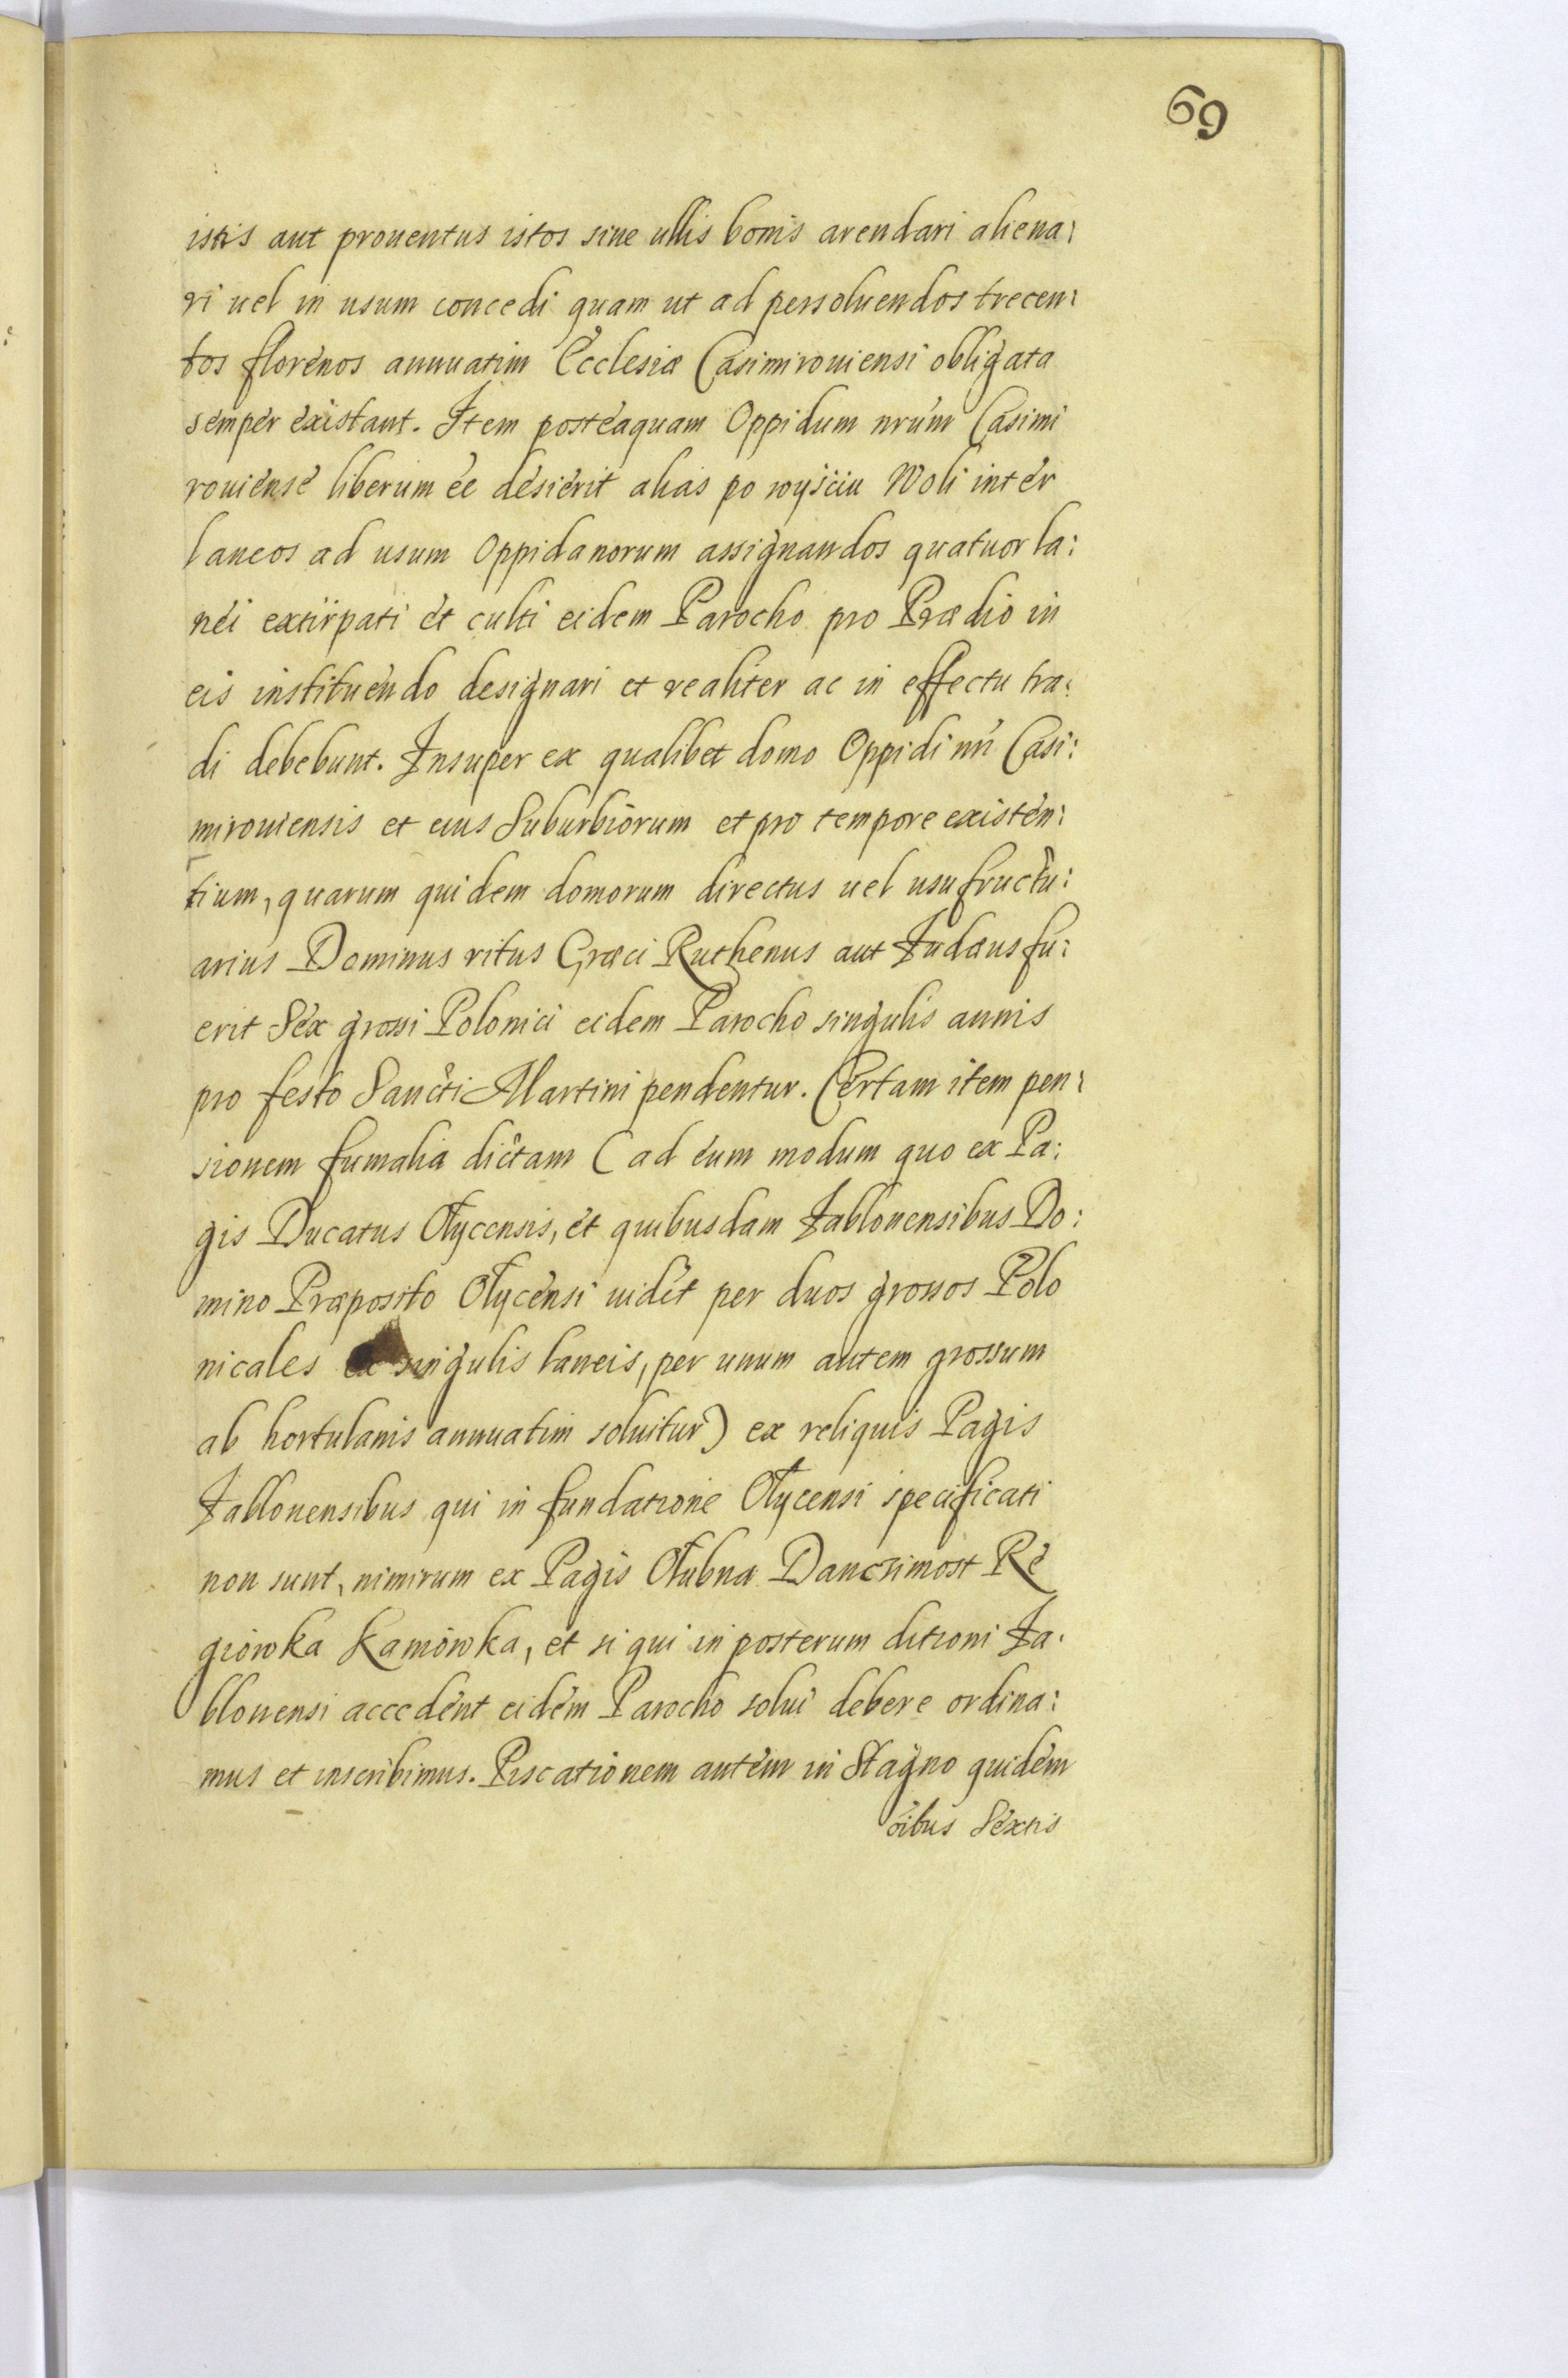 69
istis aut prouentus istos sine ullis bonis arendari aliena:
ri uel in usum concedi quam ut ad persoluendos trecen:
tos florenos annuatim Ecclesiæ Casimirouiensi obligata
semper existant. Item posteaquam Oppidum nrum Casimi
rouiense liberum ee desierit alias po wyściu Woli inter
laneos ad usum Oppidanorum assignandos quatuor la:
nei extirpati et culti eidem Parocho pro Prædio in
eis instituendo designari et realiter ac in effectu tra:
di debebunt. Insuper ex qualibet domo Oppidi nri Casi:
mirouiensis et eius Suburbiorum et pro tempore existen:
tium, quarum quidem domorum directus uel usufructu:
arius Dominus ritus Græci Ruthenus aut Iudæus fu:
erit Sex grossi Polonici eidem Parocho singulis annis
pro festo Sancti Martini pendentur. Certam item pen:
sionem fumalia dictam (ad eum modum quo ex Pa:
gis Ducatus Ołycensis, et quibusdam Iablonensibus Do:
mino Præposito Ołycensi uidet per duos grossos Polo
nicales ex singulis laneis, per unum autem grossum
ab hortulanis annuatim soluitur) ex reliquis Pagis
Iablonensibus qui in fundatione Ołycensi specificati
non sunt, nimirum ex Pagis Ołubna Danczimost Re
giowka Kamowka, et si qui in posterum ditioni Ia:
blonensi accedent eidem Parocho solui debere ordina:
mus et inscribimus. Piscationem autem in Stagno quidem
oibus Sextis